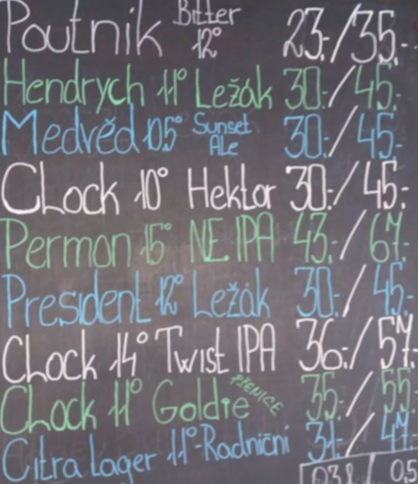 Poutník Bitter 12° 23.-/35.-
Hendrych 11° Ležák 30.-/45.-
Medvěd 10.5° Sunset Ale 30.-/45.-
CLock 10° Hektor 30.-/45.-
Permon 15° NE IPA 43.-/67.-
President 12° Ležák 30.-/45.-
CLock 14° Twist IPA 36.-/57.-
CLock 11° Goldie PŠENICE 35.-/55.-
Citra Lager 11°-Radniční 31.-/47.-
0.3 l / 0.5